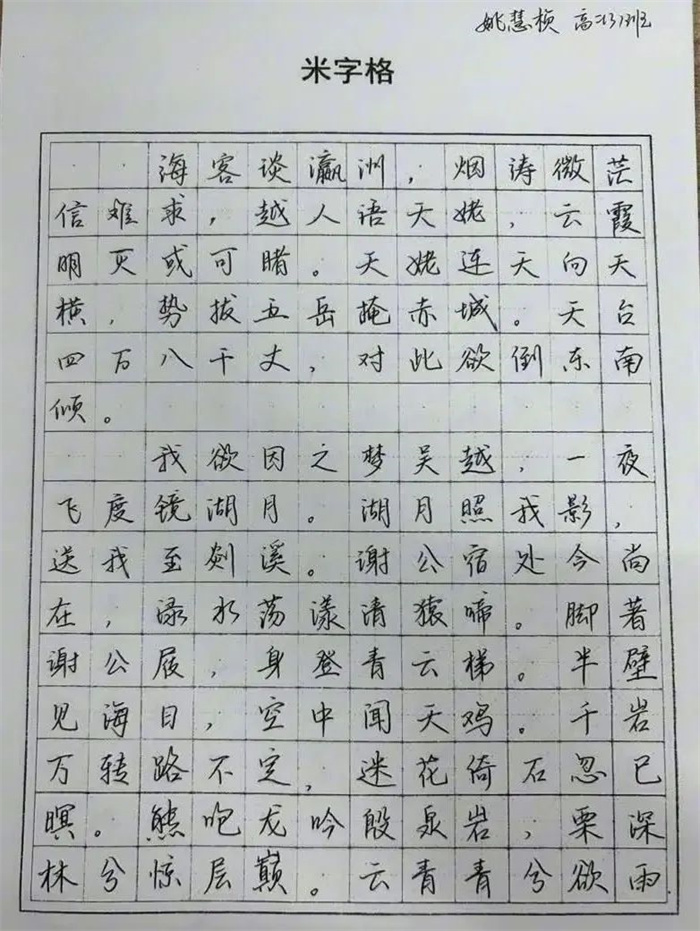 姚慧桢 高一(3)班
米字格
海客谈瀛洲，烟涛微茫
信难求，越人语天姥，云霞
明灭或可睹。天姥连天向天
横，势拔五岳掩赤城。天台
四万八千丈，对此欲倒东南
倾。
我欲因之梦吴越，一夜
飞度镜湖月。湖月照我影，
送我至剡溪。谢公宿处今尚
在，渌水荡漾清猿啼。脚著
谢公屐，身登青云梯。半壁
见海日，空中闻天鸡。千岩
万转路不定，迷花倚石忽已
暝。熊咆龙吟殷泉岩，栗深
林兮惊层巅。云青青兮欲雨